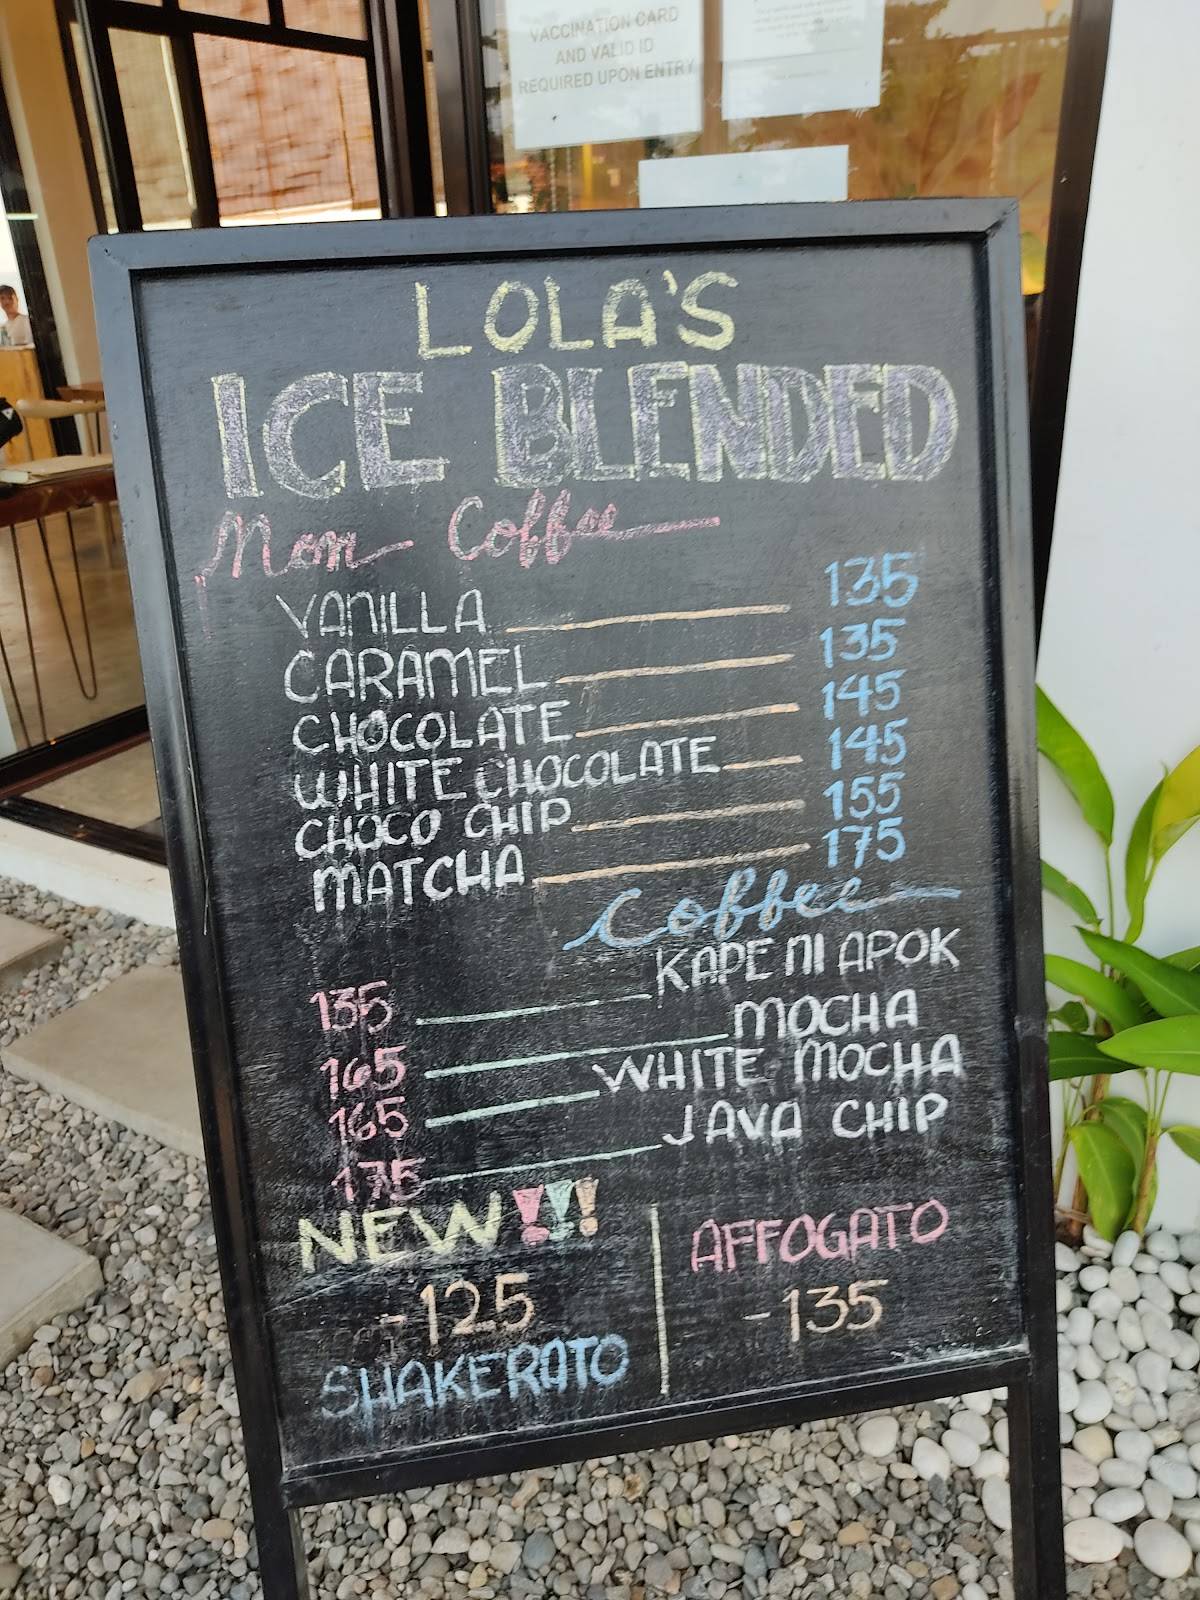 VACCINATION CARD
AND VALID ID
REQUIRED UPON ENTRY
LOLA'S
ICE BLENDED
Non Coffee
VANILLA 135
CARAMEL 135
CHOCOLATE 145
WHITE CHOCOLATE 145
CHOCO CHIP 155
MATCHA 175
Coffee
135 KAPE NI APOK
165 MOCHA
165 WHITE MOCHA
175 JAVA CHIP
NEW!!!
-125
SHAKERATO
AFFOGATO
-135